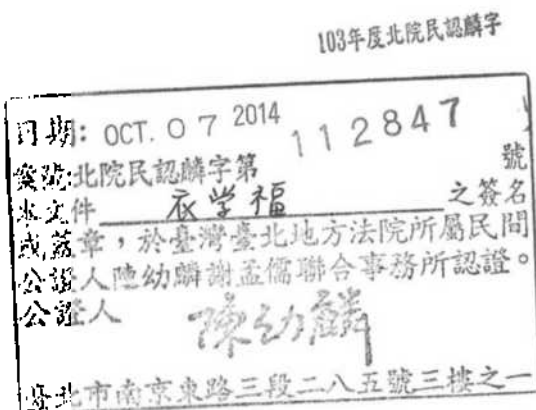 103年度北院民認麟字
日期: OCT. 07 2014 112847
案號:北院民認麟字第 號
本文件 衣学福 之簽名
或蓋章，於臺灣臺北地方法院所屬民間
公證人陳幼麟謝孟儒聯合事務所認證。
公證人 陳幼麟
臺北市南京東路三段二八五號三樓之一